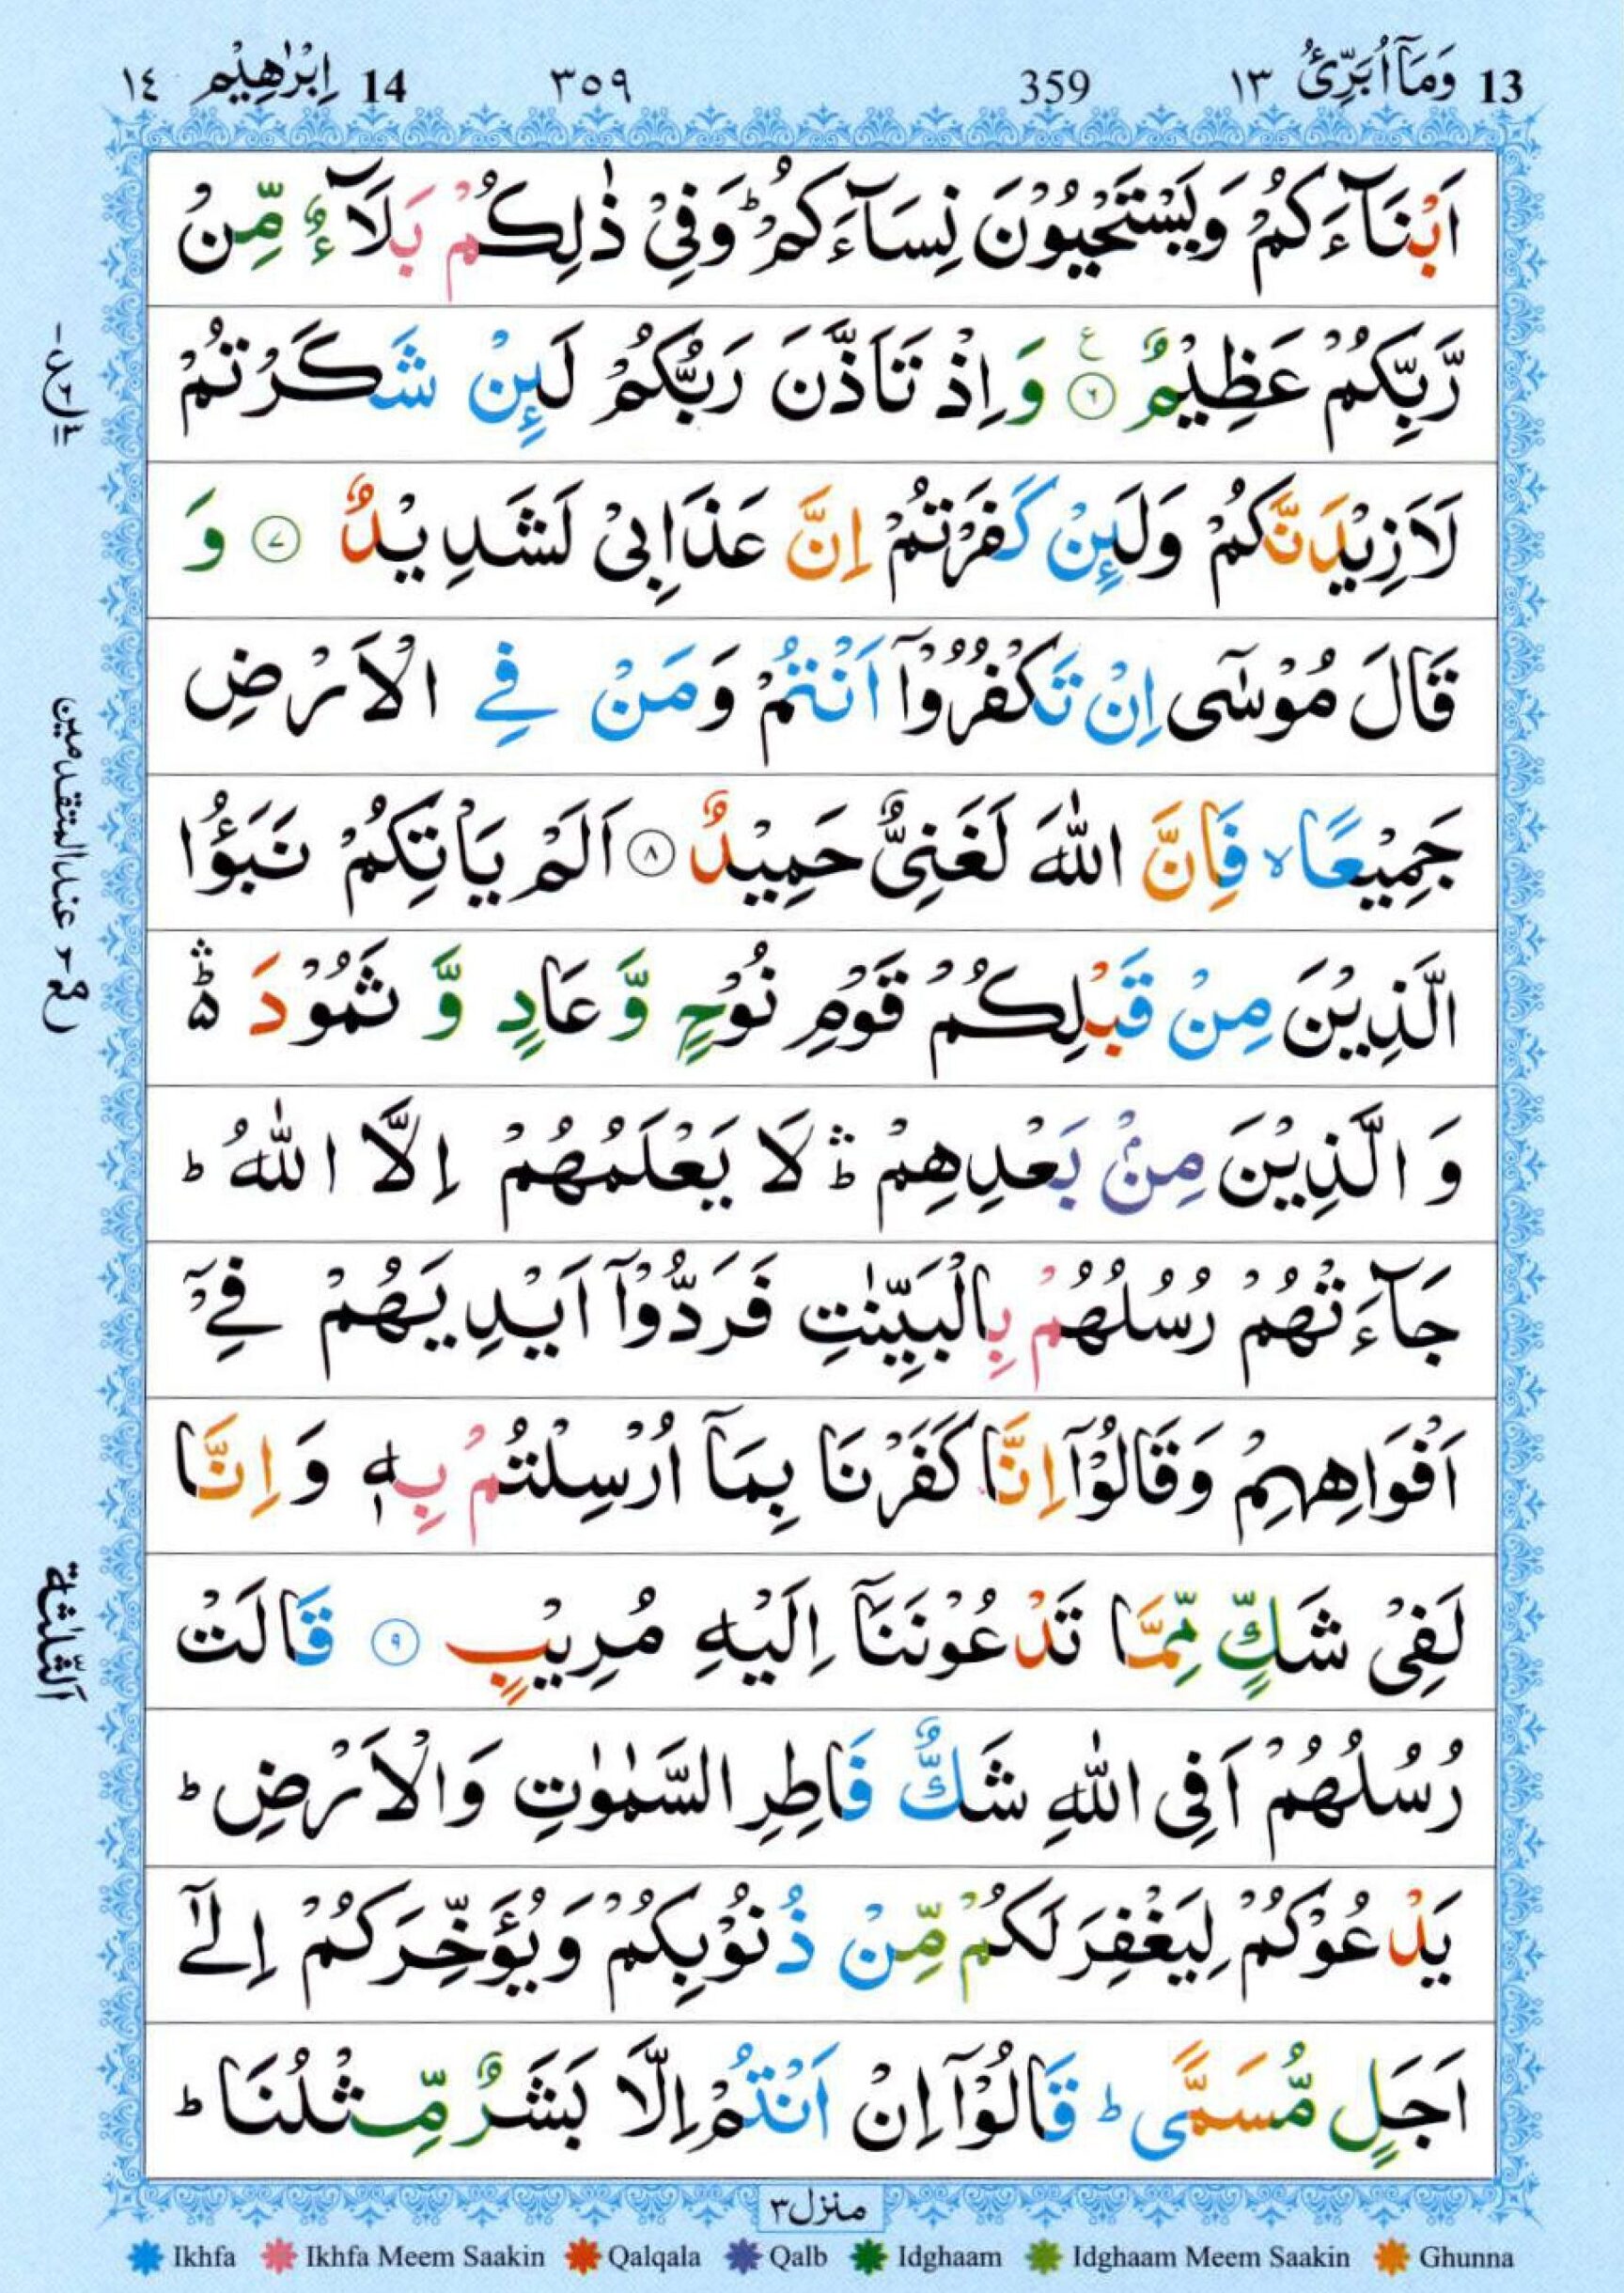 13 وَمَآ اُبَرِّئُ ١٣ 359 ٣٥٩ 14 اِبْرٰهِيْم ١٤
اَبْنَآءَكُمْ وَيَسْتَحْيُوْنَ نِسَآءَكُمْ ؕ وَفِيْ ذٰلِكُمْ بَلَآءٌ مِّنْ
رَّبِّكُمْ عَظِيْمٌ ۶ ع وَ اِذْ تَاَذَّنَ رَبُّكُمْ لَىِٕنْ شَكَرْتُمْ
لَاَزِيْدَنَّكُمْ وَلَىِٕنْ كَفَرْتُمْ اِنَّ عَذَابِيْ لَشَدِيْدٌ ۷ وَ
قَالَ مُوْسٰٓى اِنْ تَكْفُرُوْٓا اَنْتُمْ وَمَنْ فِي الْاَرْضِ
جَمِيْعًا ۙ فَاِنَّ اللّٰهَ لَغَنِيٌّ حَمِيْدٌ ۸ اَلَمْ يَاْتِكُمْ نَبَؤُا
الَّذِيْنَ مِنْ قَبْلِكُمْ قَوْمِ نُوْحٍ وَّعَادٍ وَّ ثَمُوْدَ ۛؕ
وَ الَّذِيْنَ مِنْۢ بَعْدِهِمْ ۛؕ لَا يَعْلَمُهُمْ اِلَّا اللّٰهُ ؕ
جَآءَتْهُمْ رُسُلُهُمْ بِالْبَيِّنٰتِ فَرَدُّوْٓا اَيْدِيَهُمْ فِيْٓ
اَفْوَاهِهِمْ وَقَالُوْٓا اِنَّا كَفَرْنَا بِمَآ اُرْسِلْتُمْ بِهٖ وَ اِنَّا
لَفِيْ شَكٍّ مِّمَّا تَدْعُوْنَنَآ اِلَيْهِ مُرِيْبٍ ۹ قَالَتْ
رُسُلُهُمْ اَفِي اللّٰهِ شَكٌّ فَاطِرِ السَّمٰوٰتِ وَالْاَرْضِ ؕ
يَدْعُوْكُمْ لِيَغْفِرَ لَكُمْ مِّنْ ذُنُوْبِكُمْ وَيُؤَخِّرَكُمْ اِلٰٓى
اَجَلٍ مُّسَمًّى ؕ قَالُوْٓا اِنْ اَنْتُمْ اِلَّا بَشَرٌ مِّثْلُنَا ؕ
عند المتقدمين
اَلثَّلٰثَة
منزل ٣
Ikhfa Ikhfa Meem Saakin Qalqala Qalb Idghaam Idghaam Meem Saakin Ghunna